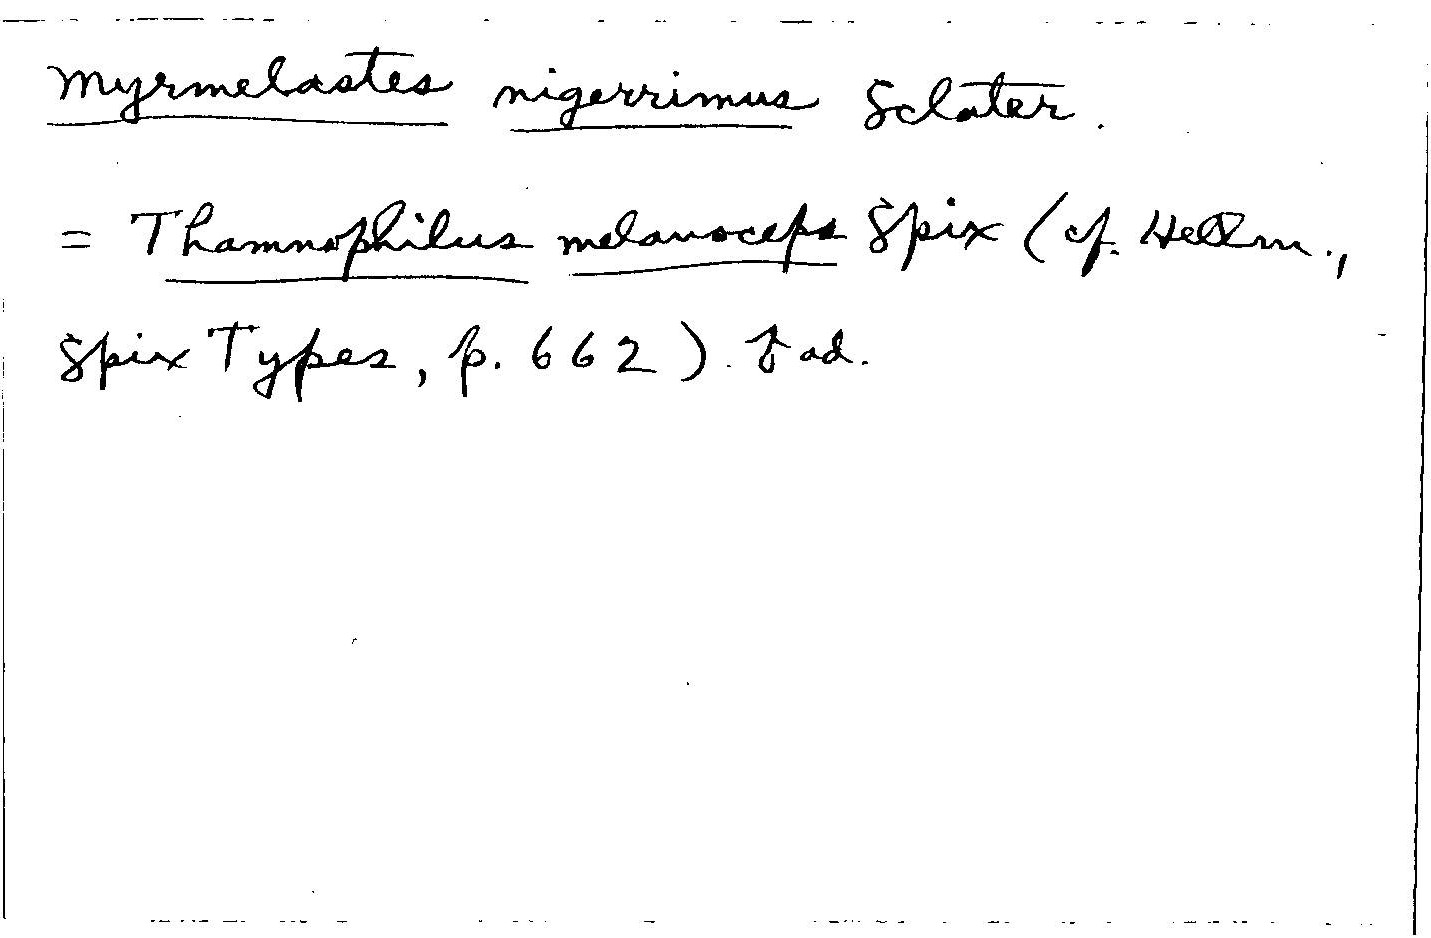 Myrmelastes nigerrimus Sclater.
= Thamnophilus melanoceps Spix (cf. Hellm.,
Spix Types, p. 662). ♂ ad.